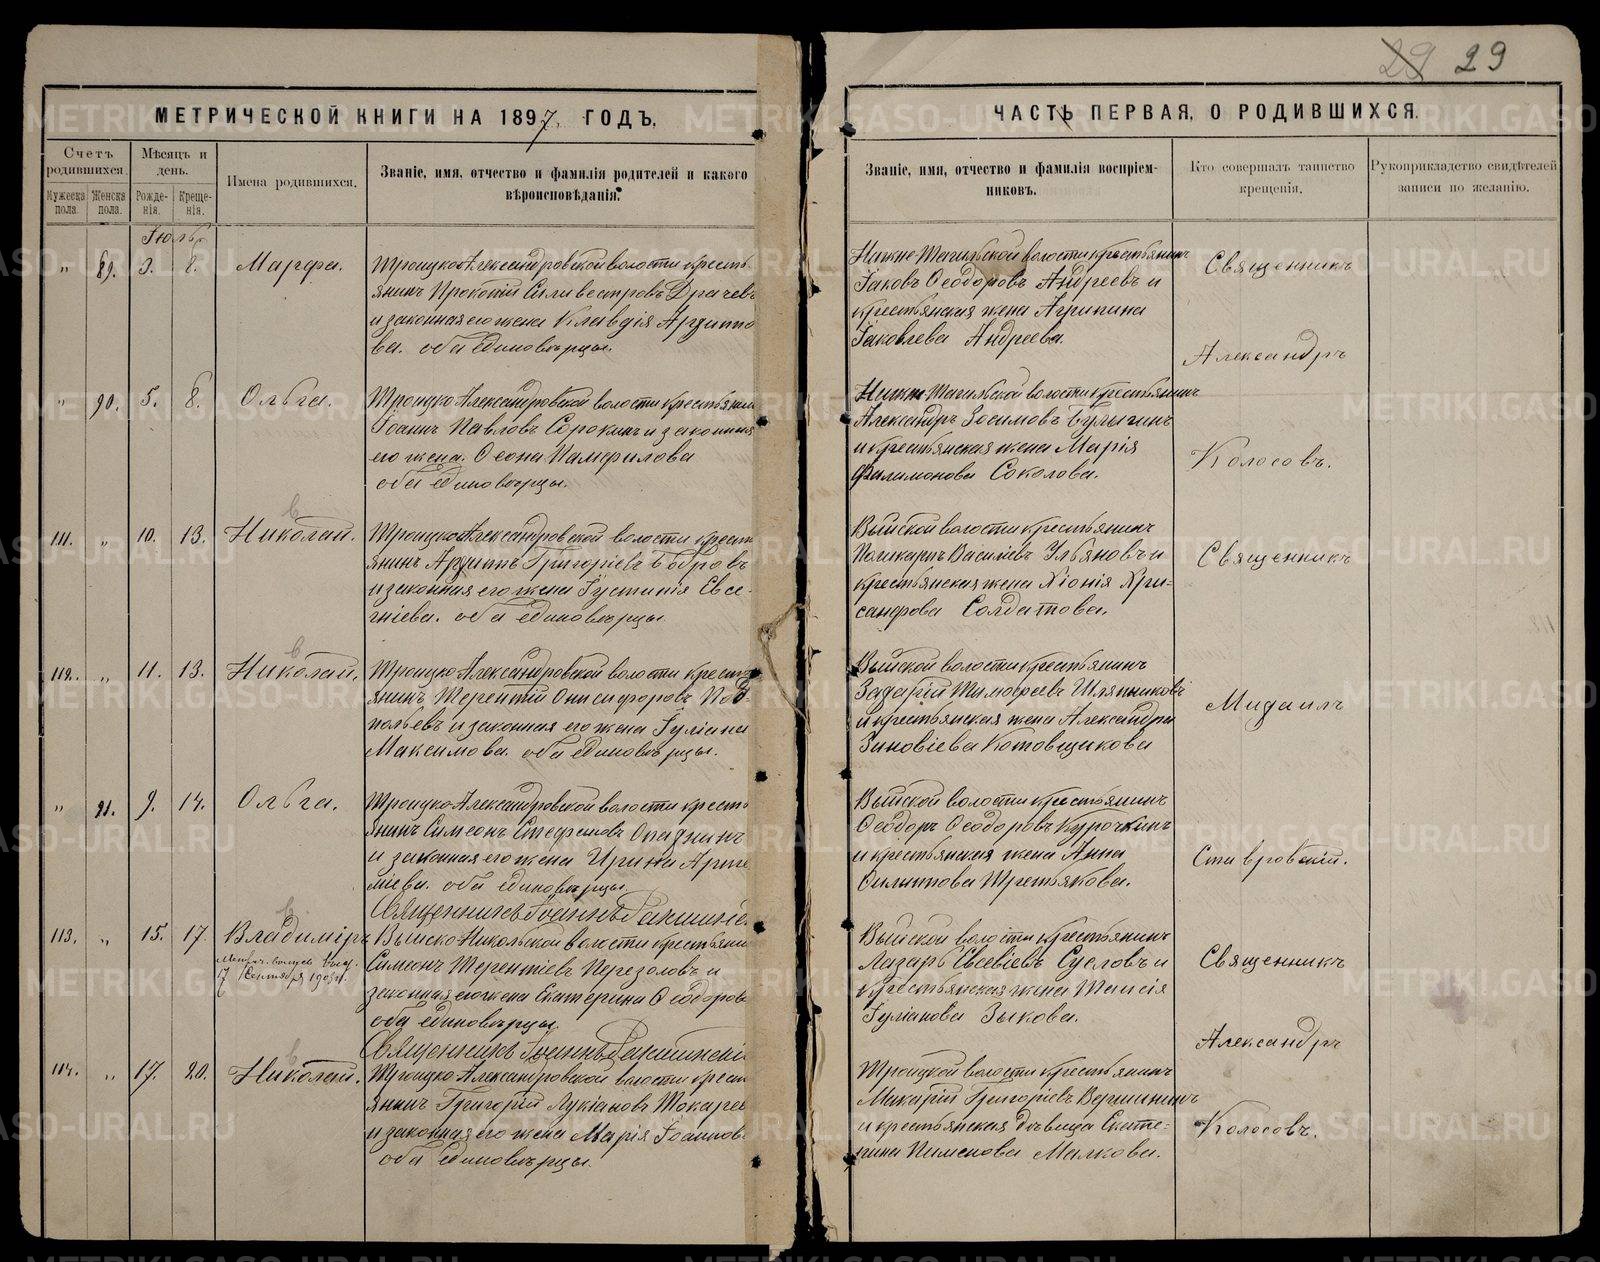 29 29
МЕТРИЧЕСКОЙ КНИГИ НА 1897 ГОДЪ.
ЧАСТЬ ПЕРВАЯ, О РОДИВШИХСЯ.
Счетъ родившихся.
Мужеска пола.
Женска пола.
Мѣсяцъ и день.
Рожде-
нія.
Креще-
нія.
Имена родившихся.
Званіе, имя, отчество и фамилія родителей и какого
вѣроисповѣданія.
Званіе, имя, отчество и фамилія воспріем-
никовъ.
Кто совершалъ таинство
крещенія.
Рукоприкладство свидѣтелей
записи по желанію.
Іюль
" 89. 3. Марѳа.
Троицко-Александровской волости кресть-
янинъ Прокопій Силивестровъ
и законная его жена Клавдія
оба единовѣрцы.
Нижне-Тагильской волости крестьянинъ
Іаковъ Ѳеодоровъ Андреевъ и
крестьянская жена Агрипина
Іаковлева Андреева.
Священникъ
Александръ
" 90. 5. 8. Ольга.
Троицко-Александровской волости крестьянинъ
Іоаннъ Павловъ Сорокинъ и законная
его жена
оба единовѣрцы.
Нижне-Тагильской волости крестьянинъ
Александръ Зосимовъ Булыгинъ
и крестьянская жена Марія
Филимонова Соколова.
Колосовъ.
111. " 10. 13. Николай.
Троицко-Александровской волости кресть
янинъ Григоріевъ Бобровъ
и законная его жена Іустинія Евсе-
гніева. оба единовѣрцы
Выйской волости крестьянинъ
Поликарпъ Василіевъ Ульяновъ и
крестьянская жена Хіонія Хри-
санфова Солдатова.
Священникъ
112. " 11. 13. Николай.
Троицко-Александровской волости кресть
янинъ Терентій Онисифоровъ
и законная его жена Іуліанія
Максимова. оба единовѣрцы.
Выйской волости крестьянинъ
Захарій Тимофеевъ Шляпниковъ
и крестьянская жена Александра
Зиновіева Котовщикова
Михаилъ
" 91. 9. 14. Ольга.
Троицко-Александровской волости кресть
янинъ Симеонъ Стефановъ
и законная его жена Ирина
оба единовѣрцы.
Священникъ Іоаннъ
Выйской волости крестьянинъ
Ѳеодоръ Ѳеодоровъ Курочкинъ
и крестьянская жена Анна
Филиппова Третьякова.
Ставровскій.
113. " 15. 17. Владиміръ
17 Сентября
Выйско-Никольской волости крестьянинъ
Симеонъ Терентіевъ Перезоловъ и
законная его жена Екатерина Ѳеодорова
оба единовѣрцы.
Священникъ Іоаннъ
Выйской волости крестьянинъ
Лазарь Евсевіевъ Сусловъ и
крестьянская жена Таисія
Іуліанова Зыкова.
Священникъ
Александръ
114. " 17. 20. Николай.
Троицко-Александровской волости кресть
янинъ Григорій Лукіановъ Токаревъ
и законная его жена Марія Іоаннова
оба единовѣрцы.
Троицкой волости крестьянинъ
Макарій Григоріевъ Вершининъ
и крестьянская дѣвица Екате-
рина Пименова Малкова.
Колосовъ.
METRIKI.GASO-URAL.RU